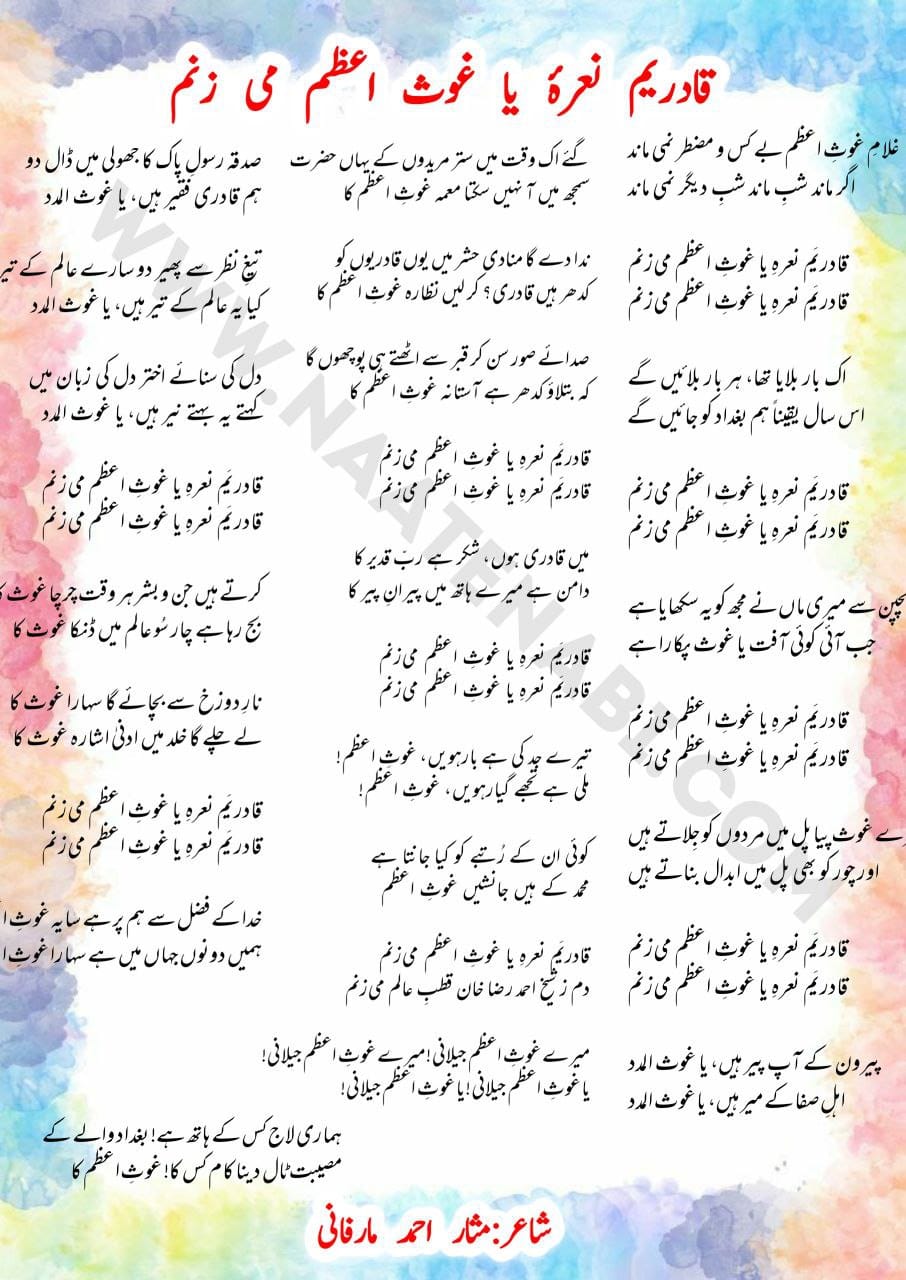 قادریم نعرۂ یا غوث اعظم می زنم
غلامِ غوثِ اعظم بے کس و مضطر نمی ماند
اگر ماند شبِ ماند شبِ دیگر نمی ماند
قادریَم نعرہِ یا غوثِ اعظم می زنم
قادریَم نعرہِ یا غوثِ اعظم می زنم
اک بار بلایا تھا، ہر بار بلائیں گے
اس سال یقیناً ہم بغداد کو جائیں گے
قادریَم نعرہِ یا غوثِ اعظم می زنم
قادریَم نعرہِ یا غوثِ اعظم می زنم
سے میری ماں نے مجھ کو یہ سکھایا ہے
جب آئی کوئی آفت یا غوث پکارا ہے
قادریَم نعرہِ یا غوثِ اعظم می زنم
قادریَم نعرہِ یا غوثِ اعظم می زنم
غوث پیا پل میں مردوں کو جِلاتے ہیں
اور چور کو بھی پل میں ابدال بناتے ہیں
قادریَم نعرہِ یا غوثِ اعظم می زنم
قادریَم نعرہِ یا غوثِ اعظم می زنم
پیرون کے آپ پیر ہیں، یا غوث المدد
اہلِ صفا کے میر ہیں، یا غوث المدد
گئے اک وقت میں ستر مریدوں کے یہاں حضرت
سمجھ میں آ نہیں سکتا معمہ غوثِ اعظم کا
ندا دے گا منادی حشر میں یوں قادریوں کو
کدھر ہیں قادری؟ کر لیں نظارہ غوثِ اعظم کا
صدائے صور سن کر قبر سے اٹھتے ہی پوچھوں گا
کہ بتلاؤ کدھر ہے آستانہ غوثِ اعظم کا
قادریَم نعرہِ یا غوثِ اعظم می زنم
قادریَم نعرہِ یا غوثِ اعظم می زنم
میں قادری ہوں، شکر ہے ربّ قدیر کا
دامن ہے میرے ہاتھ میں پیرانِ پیر کا
قادریَم نعرہِ یا غوثِ اعظم می زنم
قادریَم نعرہِ یا غوثِ اعظم می زنم
تیرے جد کی ہے بارہویں، غوثِ اعظم!
ملی ہے تجھے گیارہویں، غوثِ اعظم!
کوئی ان کے رُتبے کو کیا جانتا ہے
محمد کے ہیں جانشیں غوثِ اعظم
قادریَم نعرہِ یا غوثِ اعظم می زنم
دم ز شیخ احمد رضا خان قطبِ عالم می زنم
میرے غوثِ اعظم جیلانی! میرے غوثِ اعظم جیلانی!
یا غوثِ اعظم جیلانی! یا غوثِ اعظم جیلانی!
ہماری لاج کس کے ہاتھ ہے! بغداد والے کے
مصیبت ٹال دینا کام کس کا! غوثِ اعظم کا
صدقہ رسولِ پاک کا جھولی میں ڈال دو
ہم قادری فقیر ہیں، یا غوث المدد
تیغِ نظر سے پھیر دو سارے عالم کے تیر
کیا یہ عالم کے تیر ہیں، یا غوث المدد
دل کی سنائے اختر دل کی زبان میں
کہتے یہ بہتے نیر ہیں، یا غوث المدد
قادریَم نعرہِ یا غوثِ اعظم می زنم
قادریَم نعرہِ یا غوثِ اعظم می زنم
کرتے ہیں جن و بشر ہر وقت چرچا غوث
بج رہا ہے چار سُو عالم میں ڈنکا غوث کا
نارِ دوزخ سے بچائے گا سہارا غوث کا
لے چلے گا خلد میں ادنیٰ اشارہ غوث کا
قادریَم نعرہِ یا غوثِ اعظم می زنم
قادریَم نعرہِ یا غوثِ اعظم می زنم
خدا کے فضل سے ہم پر ہے سایہ غوثِ
ہمیں دونوں جہاں میں ہے سہارا غوثِ
شاعر: مثار احمد مارفانی
WWW.NAATENABI.COM